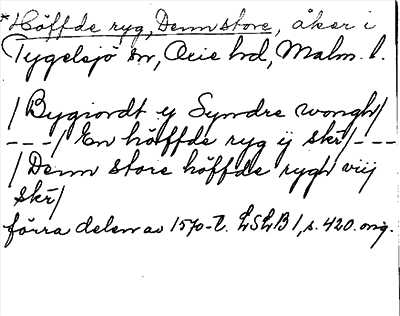 *Höffde ryg, Denn store, åker i
Tygelsjö sn, Oxie hd, Malm. l.
/Bygiordt ij Syndre wongh/
---/ En höffde ryg ij skr/---
/Denn store höffde rygh viij
skr/
förra delen av 1570-t. LSLB 1, s. 420. orig.